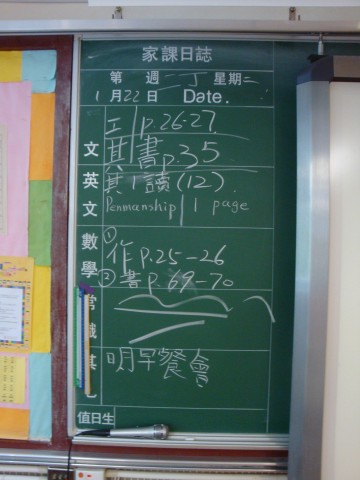 家課日誌
第 週 二 丁 星期二
1月22日 Date.
文 工 p.26-27
其 書 p.35
英文 其 1 讀(12)
Penmanship 1 page
數學 ① 作 p.25-26
② 書 p.69-70
常識
其他 明早餐會
值日生